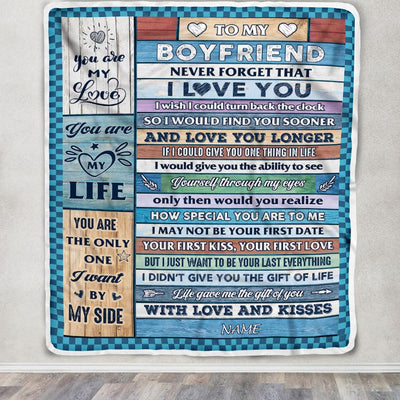 you are
MY
Love
You are
MY
LIFE
YOU ARE
THE ONLY
ONE
I want
BY
MY SIDE
TO MY
BOYFRIEND
NEVER FORGET THAT
I LOVE YOU
I wish I could turn back the clock
SO I WOULD FIND YOU SOONER
AND LOVE YOU LONGER
IF I COULD GIVE YOU ONE THING IN LIFE
I would give you the ability to see
Yourself through my eyes
only then would you realize
HOW SPECIAL YOU ARE TO ME
I MAY NOT BE YOUR FIRST DATE
YOUR FIRST KISS, YOUR FIRST LOVE
BUT I JUST WANT TO BE YOUR LAST EVERYTHING
I DIDN'T GIVE YOU THE GIFT OF LIFE
Life gave me the gift of you
WITH LOVE AND KISSES
NAME